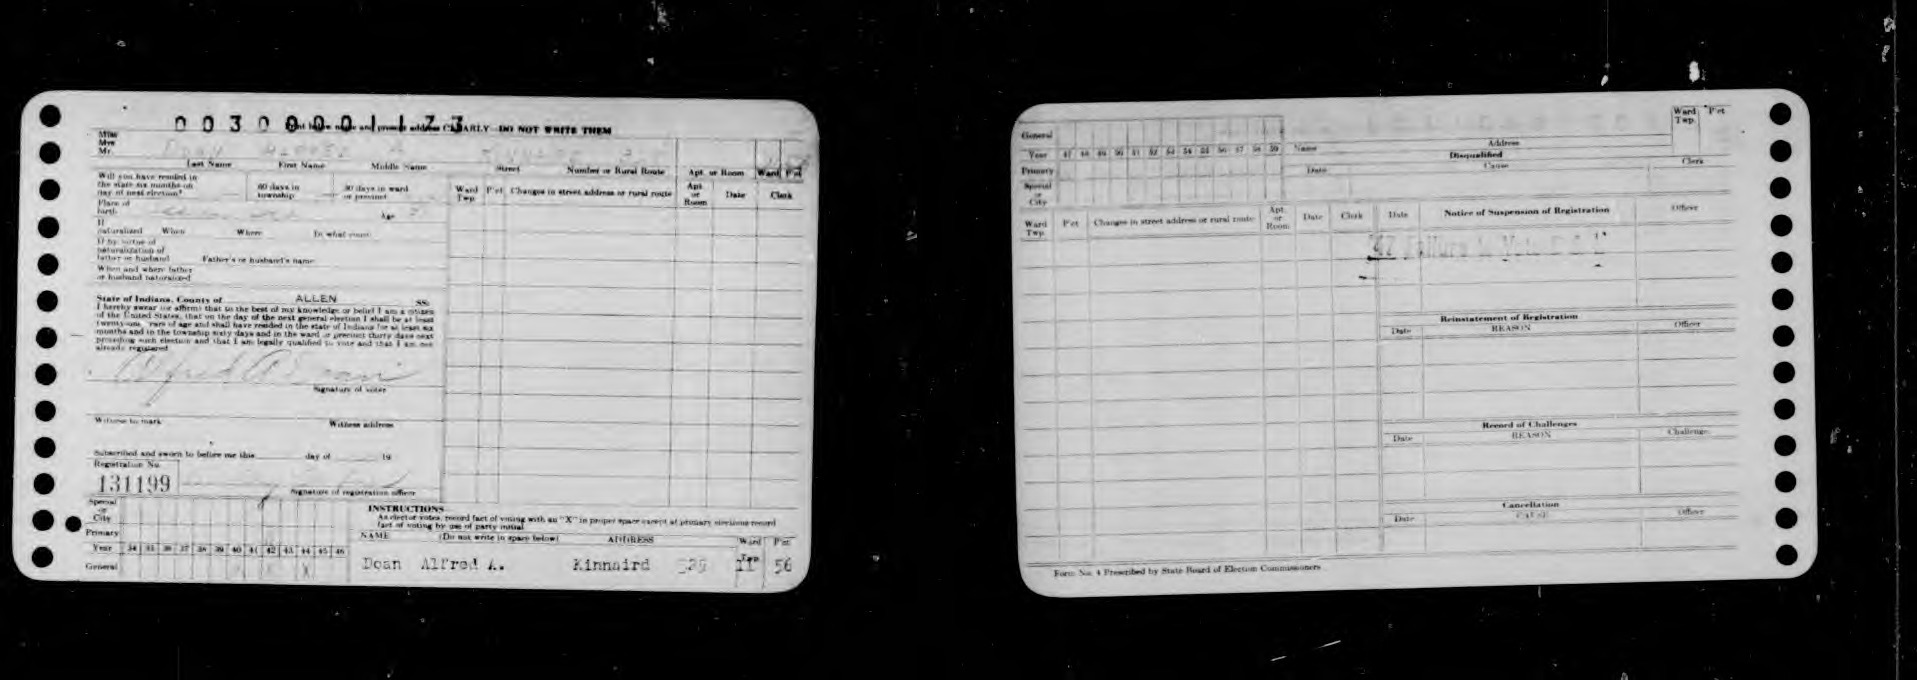 00300001173
Print below name and present address CLEARLY—DO NOT WRITE THEM
Miss
Mrs
Mr.
Last Name First Name Middle Name Street Number or Rural Route Apt. or Room Ward Pct
Will you have resided in
the state six months on
day of next election?
60 days in
township
30 days in ward
or precinct
Ward
Twp Pct Changes in street address or rural route Apt
or
Room Date Clerk
Place of
birth Age
If
naturalized When Where In what court
If by virtue of
naturalization of
father or husband Father's or husband's name
When and where father
or husband naturalized
State of Indiana, County of ALLEN SS:
I hereby swear (or affirm) that to the best of my knowledge or belief I am a citizen
of the United States, that on the day of the next general election I shall be at least
twenty-one years of age and shall have resided in the state of Indiana for at least six
months and in the township sixty days and in the ward or precinct thirty days next
preceding such election and that I am legally qualified to vote and that I am not
already registered
Alfred A Doan
Signature of voter
Witness to mark Witness address
Subscribed and sworn to before me this day of 19
Registration No.
131199
Signature of registration officer
Special
or
City
Primary
Year 34 35 36 37 38 39 40 41 42 43 44 45 46
General X X
INSTRUCTIONS
As elector votes, record fact of voting with an "X" in proper space except at primary elections record
fact of voting by use of party initial
NAME (Do not write in space below) ADDRESS Ward Twp Pct
Doan Alfred A. Kinnaird 11 56
General
Year 47 48 49 50 51 52 53 54 55 56 57 58 59
Primary
Special
or
City
Name Address Ward
Twp Pct
Disqualified
Date Cause Clerk
Ward
Twp Pct Changes in street address or rural route Apt.
or
Room Date Clerk Date Notice of Suspension of Registration Officer
47 Failure to Vote
Reinstatement of Registration
Date REASON Officer
Record of Challenges
Date REASON Challenge
Cancellation
Date CAUSE Officer
Form No. 4 Prescribed by State Board of Election Commissioners